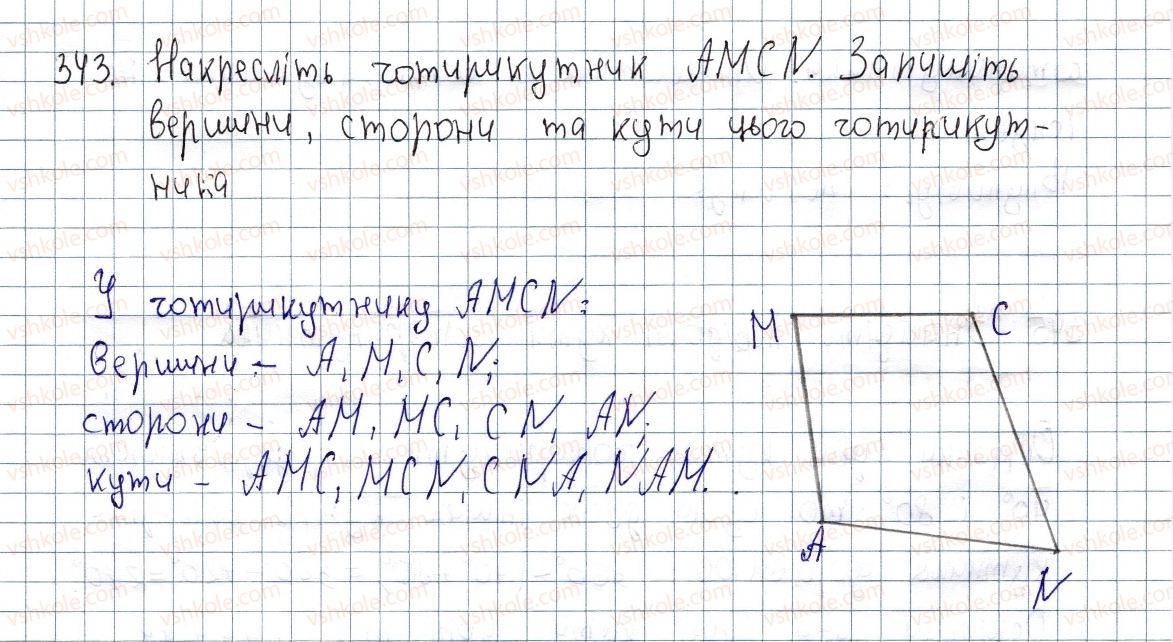 343. Накресліть чотирикутник AMCN. Запишіть
вершини, сторони та кути цього чотирикут-
ника
У чотирикутнику AMCN:
вершини - A, M, C, N;
сторони - AM, MC, CN, AN;
кути - AMC, MCN, CNA, NAM.
M
C
A
N